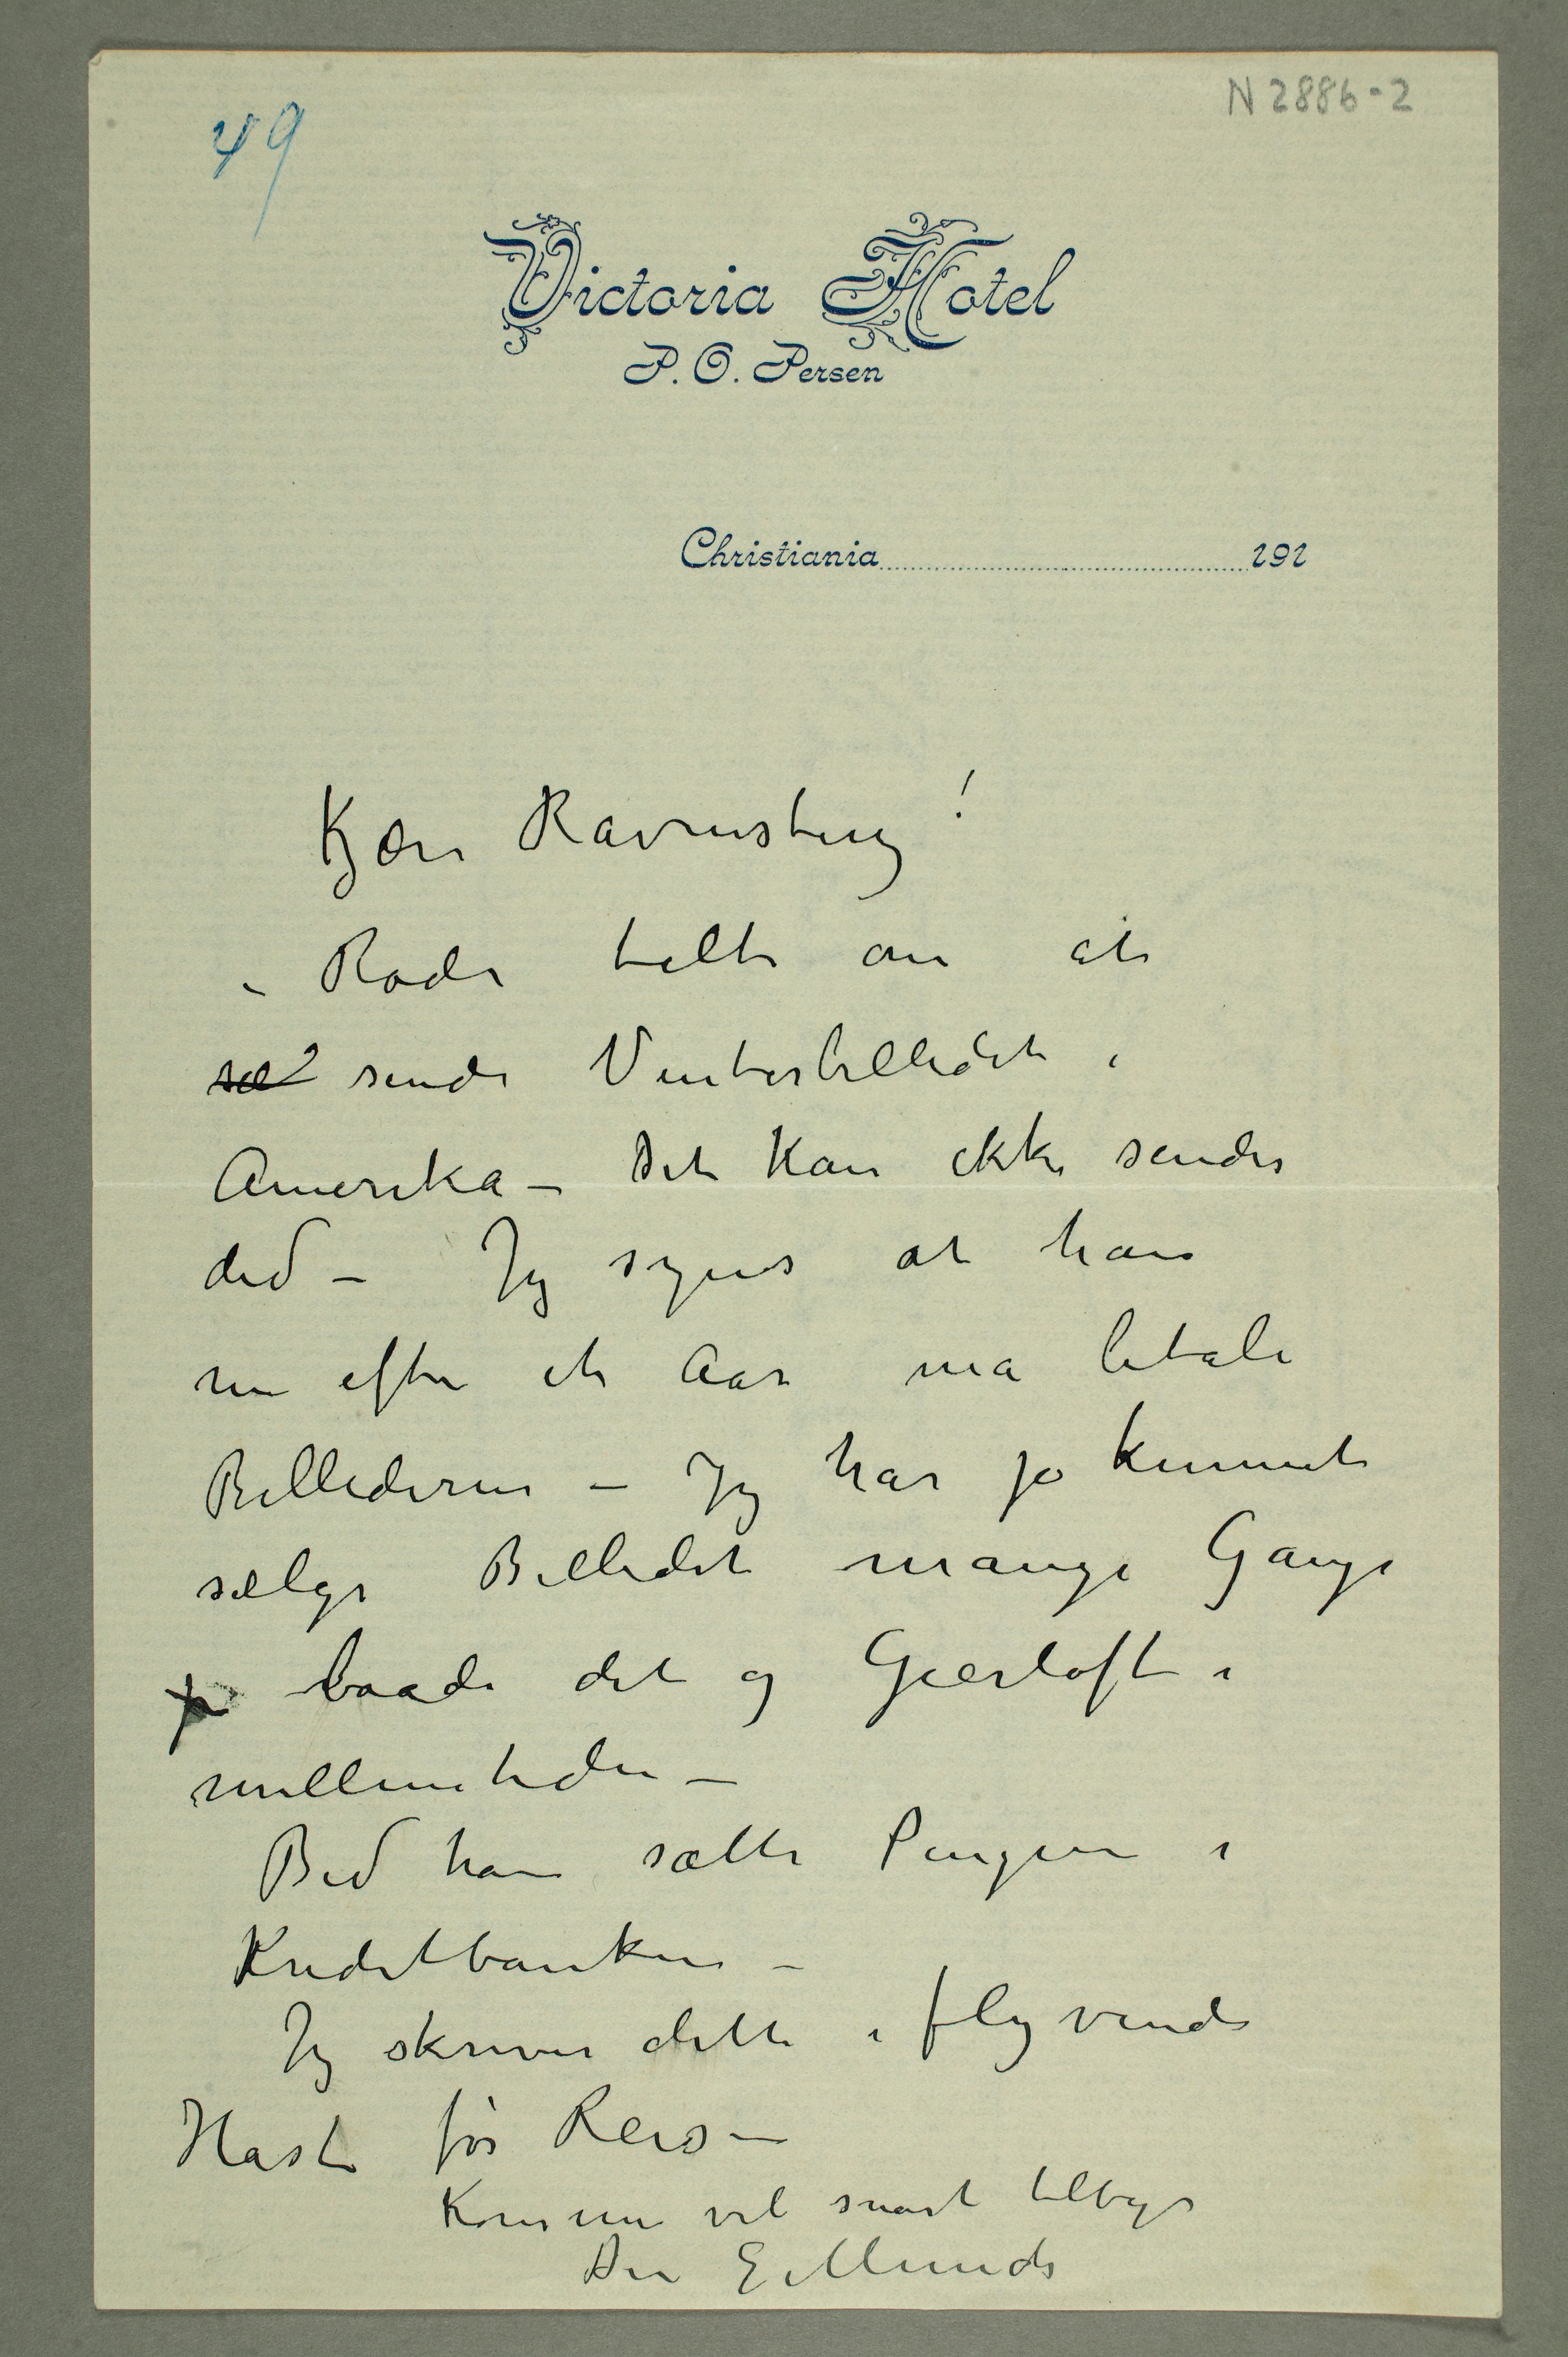 49
N 2886-2
Victoria Hotel
P. O. Persen
Christiania 191
Kjære Ravensberg!
– Rode talte om at
sæ sende Vinterbilledet i
Amerika – Det kan ikke sendes
did – Jeg synes at han
nu efter et Aar må betale
Billederne – Jeg har jo kunnet
sælge Billedet mange Gange
ja baade det og Gierløft i
mellemtiden –
Bed ham sætte Pengene i
Kreditbanken –
Jeg skriver dette i flyvende
Hast før Reisen
Kommer vel snart tilbage
Din E. Munch